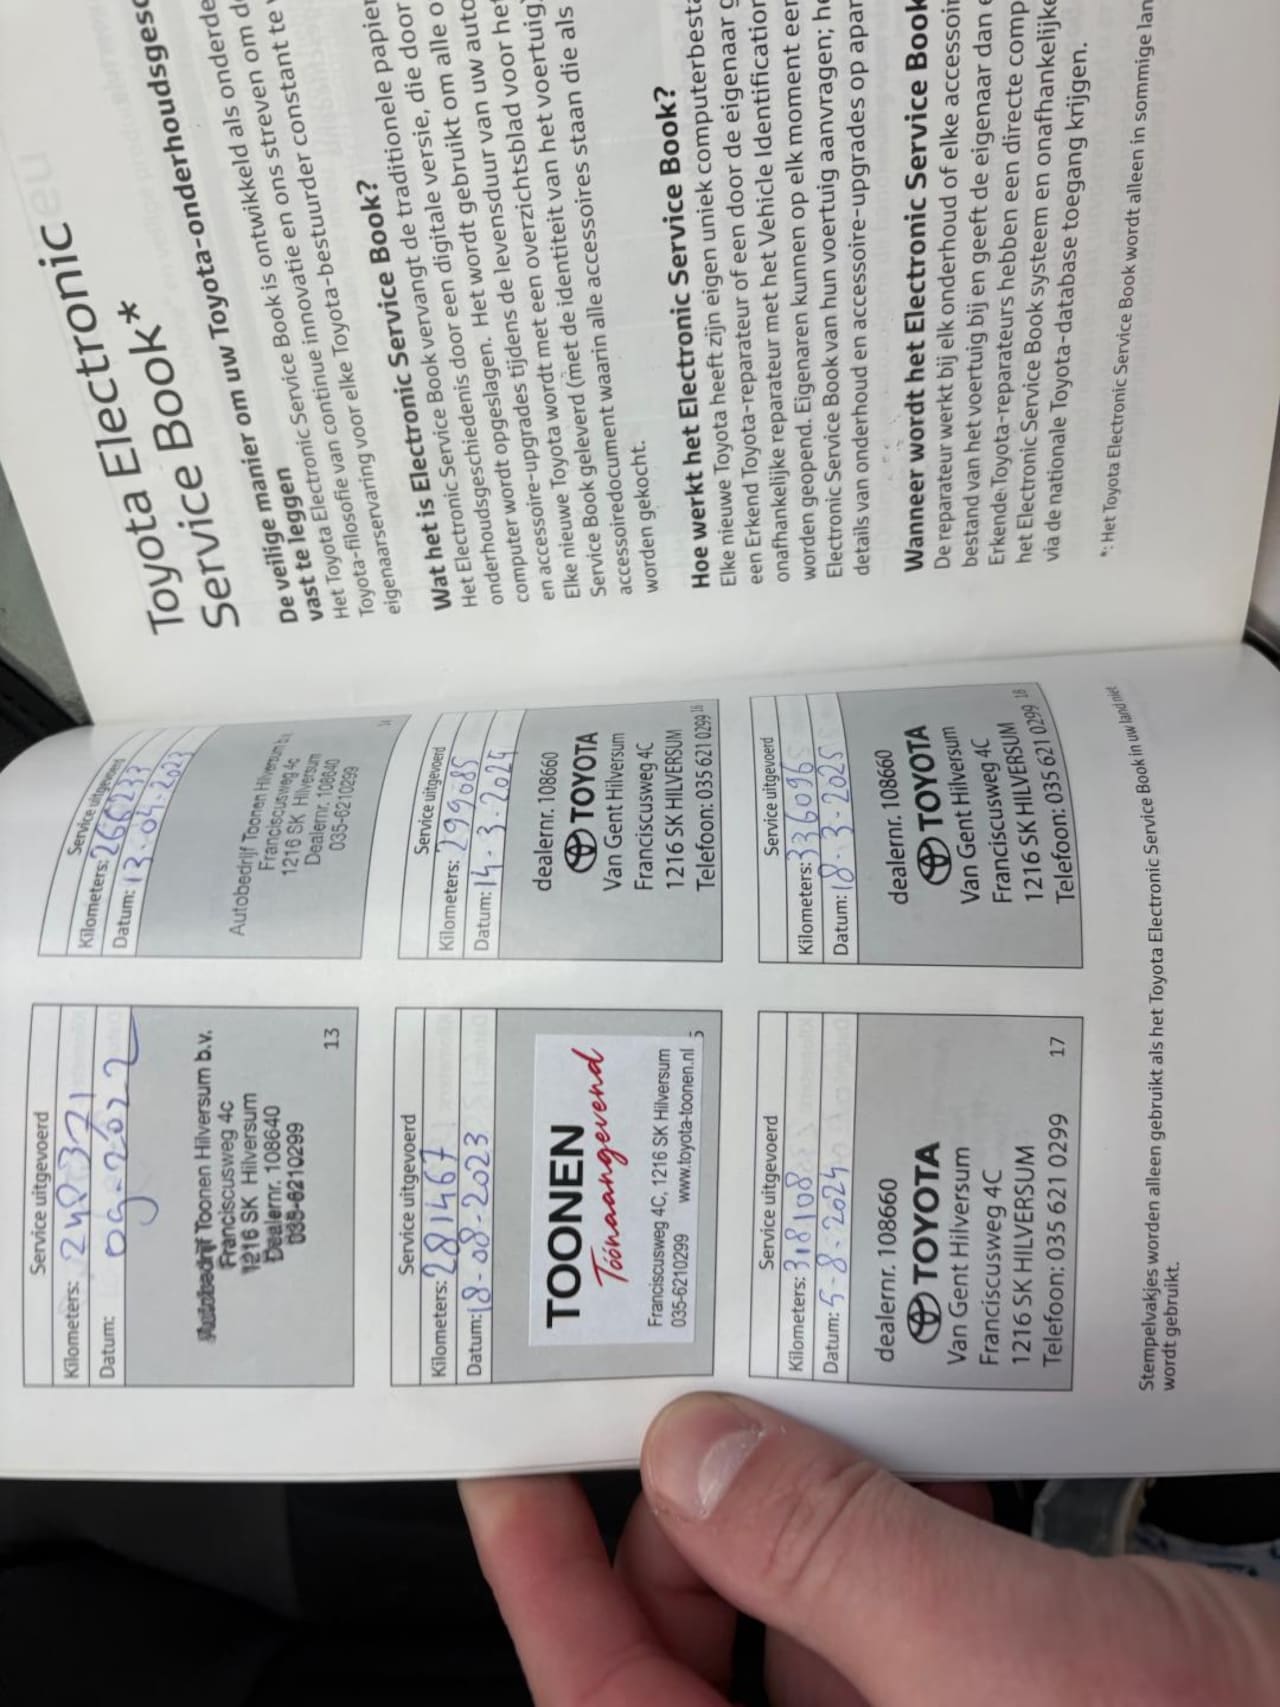 Service uitgevoerd
Kilometers: 248371
Datum: 09-2022
Autobedrijf Toonen Hilversum b.v.
Franciscusweg 4c
1216 SK Hilversum
Dealernr. 108640
035-6210299
13
Service uitgevoerd
Kilometers: 266233
Datum: 13-04-2023
Autobedrijf Toonen Hilversum b.v.
Franciscusweg 4c
1216 SK Hilversum
Dealernr. 108640
035-6210299
Service uitgevoerd
Kilometers: 281467
Datum: 18-08-2023
TOONEN
Tóónaangevend
Franciscusweg 4C, 1216 SK Hilversum
035-6210299 www.toyota-toonen.nl
5
Service uitgevoerd
Kilometers: 299085
Datum: 14-3-2024
dealernr. 108660
TOYOTA
Van Gent Hilversum
Franciscusweg 4C
1216 SK HILVERSUM
Telefoon: 035 621 0299
16
Service uitgevoerd
Kilometers: 318108
Datum: 5-8-2024
dealernr. 108660
TOYOTA
Van Gent Hilversum
Franciscusweg 4C
1216 SK HILVERSUM
Telefoon: 035 621 0299
17
Service uitgevoerd
Kilometers: 336096
Datum: 18-3-2025
dealernr. 108660
TOYOTA
Van Gent Hilversum
Franciscusweg 4C
1216 SK HILVERSUM
Telefoon: 035 621 0299
18
Stempelvakjes worden alleen gebruikt als het Toyota Electronic Service Book in uw land niet
wordt gebruikt.
Toyota Electronic
Service Book*
De veilige manier om uw Toyota-onderhoudsgesc
vast te leggen
Het Toyota Electronic Service Book is ontwikkeld als onderde
Toyota-filosofie van continue innovatie en ons streven om de
eigenaarservaring voor elke Toyota-bestuurder constant te v
Wat het is Electronic Service Book?
Het Electronic Service Book vervangt de traditionele papier
onderhoudsgeschiedenis door een digitale versie, die door
computer wordt opgeslagen. Het wordt gebruikt om alle o
en accessoire-upgrades tijdens de levensduur van uw auto
Elke nieuwe Toyota wordt met een overzichtsblad voor het
Service Book geleverd (met de identiteit van het voertuig)
accessoiredocument waarin alle accessoires staan die als
worden gekocht.
Hoe werkt het Electronic Service Book?
Elke nieuwe Toyota heeft zijn eigen uniek computerbesta
een Erkend Toyota-reparateur of een door de eigenaar g
onafhankelijke reparateur met het Vehicle Identification
worden geopend. Eigenaren kunnen op elk moment een
Electronic Service Book van hun voertuig aanvragen; he
details van onderhoud en accessoire-upgrades op apar
Wanneer wordt het Electronic Service Book
De reparateur werkt bij elk onderhoud of elke accessoir
bestand van het voertuig bij en geeft de eigenaar dan e
Erkende Toyota-reparateurs hebben een directe comp
het Electronic Service Book systeem en onafhankelijke
via de nationale Toyota-database toegang krijgen.
*: Het Toyota Electronic Service Book wordt alleen in sommige lan